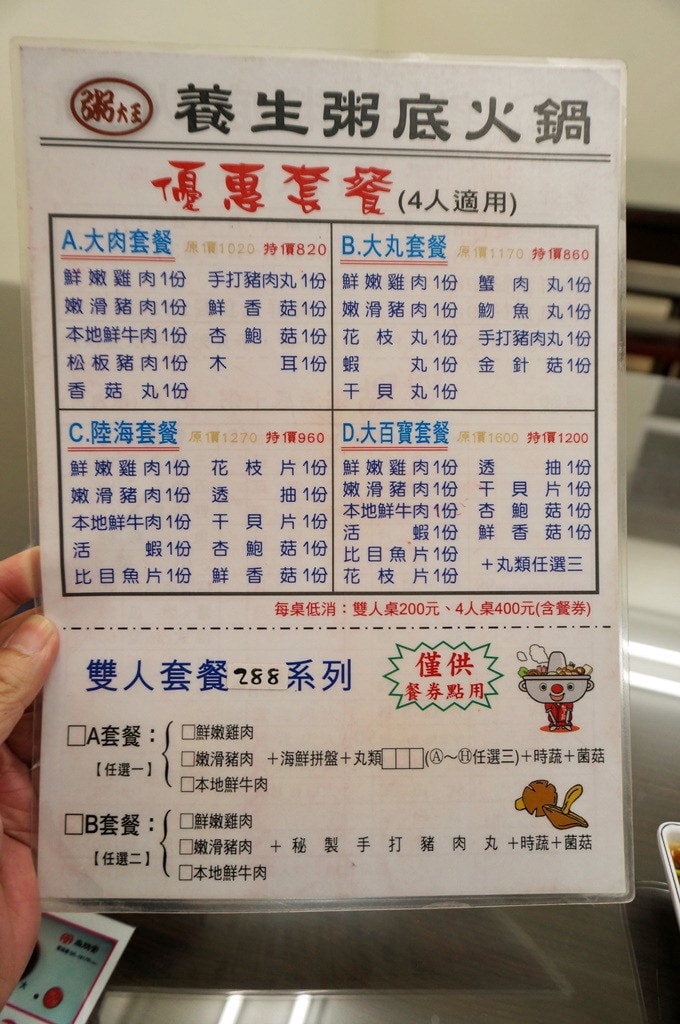 粥大王 養生粥底火鍋
優惠套餐(4人適用)
A.大肉套餐 原價1020 特價820
鮮嫩雞肉1份 手打豬肉丸1份
嫩滑豬肉1份 鮮香菇1份
本地鮮牛肉1份 杏鮑菇1份
松板豬肉1份 木耳1份
香菇丸1份
B.大丸套餐 原價1170 特價860
鮮嫩雞肉1份 蟹肉丸1份
嫩滑豬肉1份 魩魚丸1份
花枝丸1份 手打豬肉丸1份
蝦丸1份 金針菇1份
干貝丸1份
C.陸海套餐 原價1270 特價960
鮮嫩雞肉1份 花枝片1份
嫩滑豬肉1份 透抽1份
本地鮮牛肉1份 干貝片1份
活蝦1份 杏鮑菇1份
比目魚片1份 鮮香菇1份
D.大百寶套餐 原價1600 特價1200
鮮嫩雞肉1份 透抽1份
嫩滑豬肉1份 干貝片1份
本地鮮牛肉1份 杏鮑菇1份
活蝦1份 鮮香菇1份
比目魚片1份 +丸類任選三
花枝片1份
每桌低消：雙人桌200元、4人桌400元(含餐券)
雙人套餐288系列
僅供
餐券點用
□A套餐：
【任選一】
□鮮嫩雞肉
□嫩滑豬肉 +海鮮拼盤+丸類□□□(Ⓐ～Ⓗ任選三)+時蔬+菌菇
□本地鮮牛肉
□B套餐：
【任選二】
□鮮嫩雞肉
□嫩滑豬肉 +秘製手打豬肉丸+時蔬+菌菇
□本地鮮牛肉